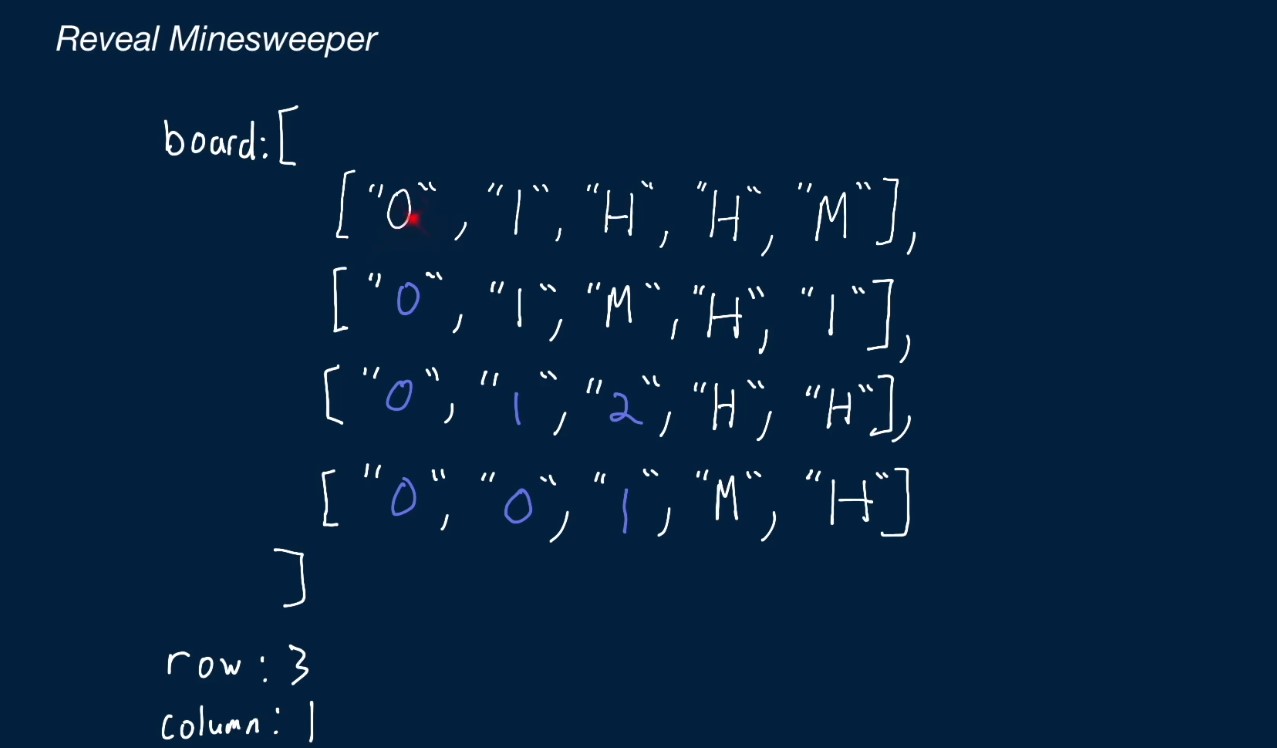 Reveal Minesweeper
board:[
["0", "1", "H", "H", "M"],
["0", "1", "M", "H", "1"],
["0", "1", "2", "H", "H"],
["0", "0", "1", "M", "H"]
]
row: 3
column: 1